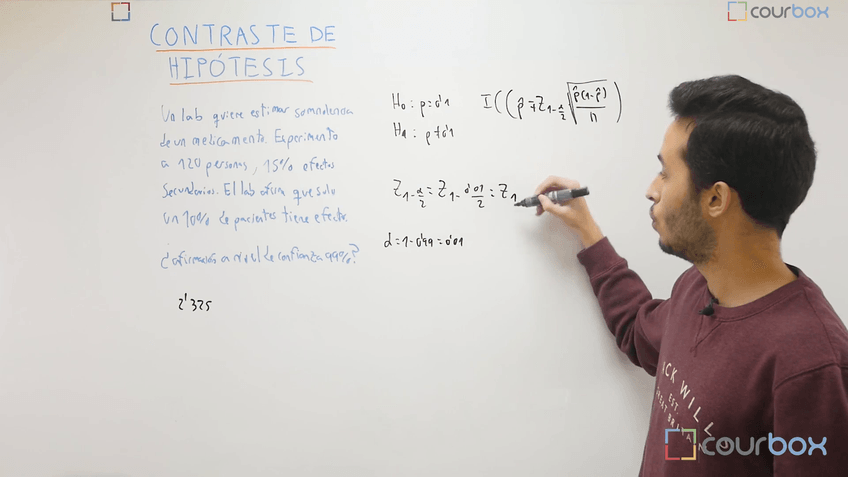 courbox
CONTRASTE DE
HIPÓTESIS
Un lab quiere estimar somnolencia
de un medicamento. Experimento
a 120 personas, 15% efectos
secundarios. El lab afirma que solo
un 10% de pacientes tiene efecto.
¿afirmamos a nivel de confianza 99%?
2'325
H₀: p=0'1
H₁: p≠0'1
I((p̂ ∓ Z₁₋α/₂ √(p̂(1-p̂)/n))
Z₁₋α/₂ = Z₁₋₀'₀₁/₂ = Z₁
α = 1-0'99 = 0'01
ACK WILL
EST.
GREAT BRITA
courbox